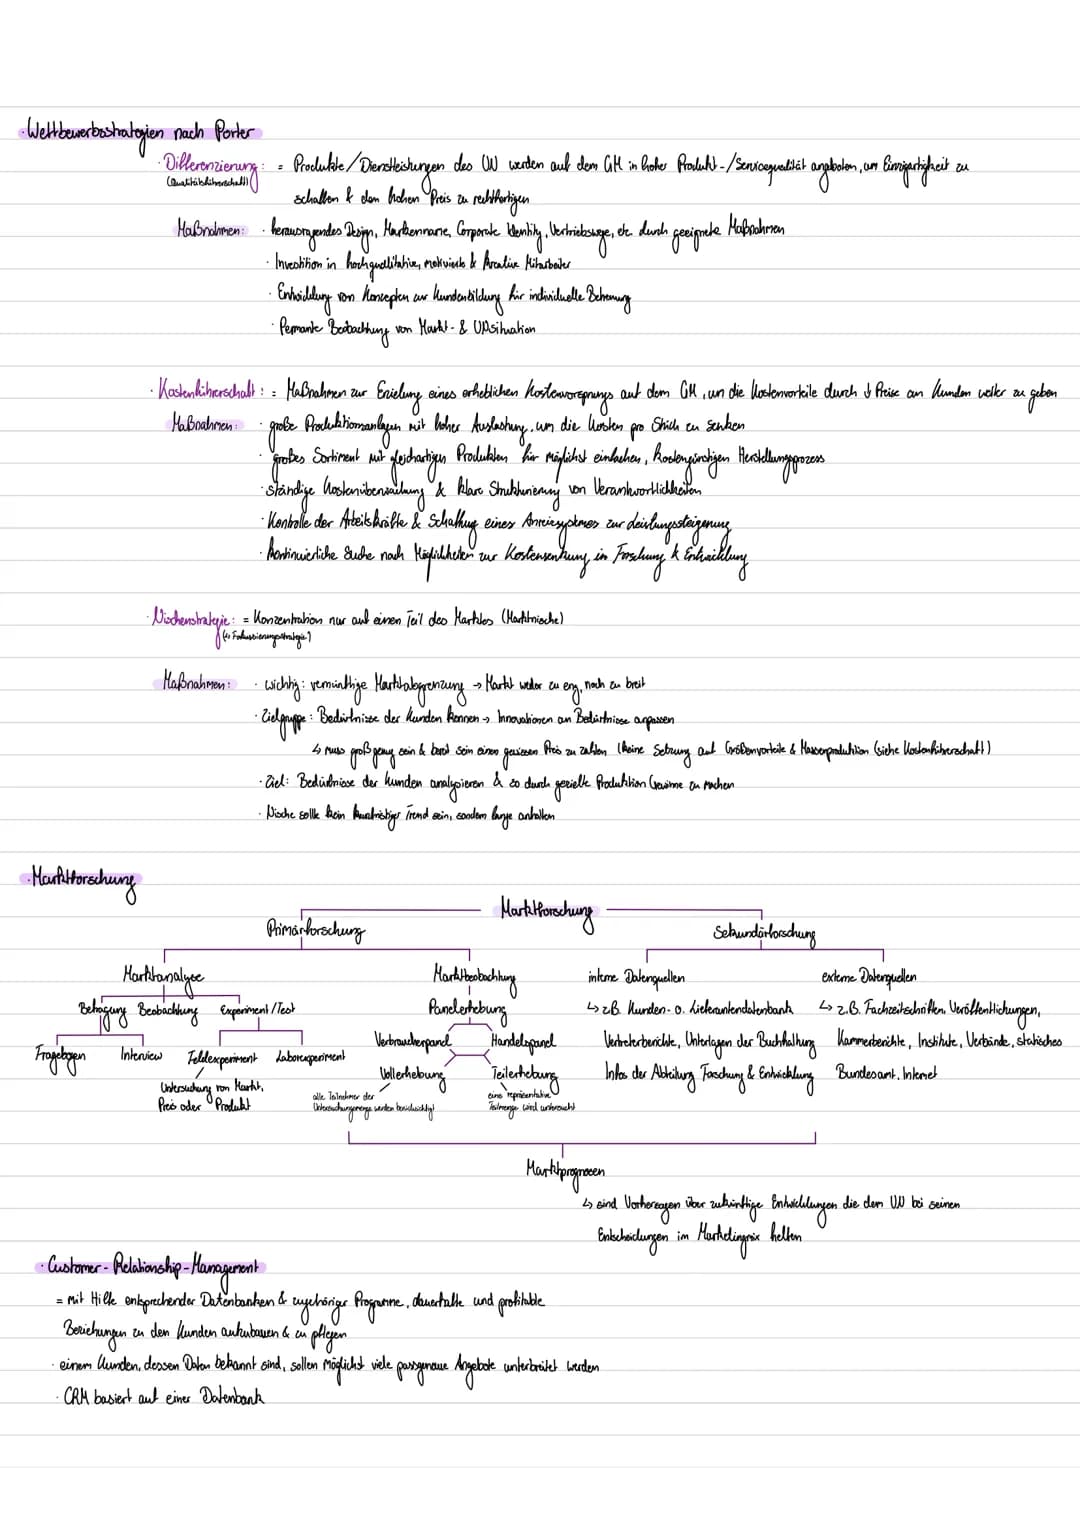 · Wettbewerbsstrategien nach Porter
· Differenzierung: = Produkte/Dienstleistungen des UN werden auf dem GM in hoher Produkt-/Servicequalität angeboten, um Einzigartigkeit zu
(Qualitätsführerschaft)
schaffen & den hohen Preis zu rechtfertigen
Maßnahmen: · herausragendes Design, Markenname, Corporate Identity, Vertriebswege, etc. durch geeignete Maßnahmen
· Investition in hochqualitative, motivierte & kreative Mitarbeiter
· Entwicklung von Konzepten zur Kundenbildung für individuelle Betreuung
· Permante Beobachtung von Markt- & UNsituation
· Kostenführerschaft: = Maßnahmen zur Erzielung eines erheblichen Kostenvorsprungs auf dem GM, um die Kostenvorteile durch ↓ Preise an Kunden weiter zu geben
Maßnahmen: · große Produktionsanlagen mit hoher Auslastung, um die Kosten pro Stück zu senken
· großes Sortiment mit gleichartigen Produkten für möglichst einfachen, kostengünstigen Herstellungsprozess
· ständige Kostenüberwachung & klare Strukturierung von Verantwortlichkeiten
· Kontrolle der Arbeitskräfte & Schaffung eines Anreizsystemes zur Leistungssteigerung
· kontinuierliche Suche nach Möglichkeiten zur Kostensenkung in Forschung & Entwicklung
· Nischenstrategie: = Konzentration nur auf einen Teil des Marktes (Marktnische)
(↔ Fokussierungsstrategie)
Maßnahmen: · wichtig: vernünftige Marktabgrenzung → Markt weder zu eng, noch zu breit
· Zielgruppe: Bedürfnisse der Kunden kennen → Innovationen an Bedürfnisse anpassen
↳ muss groß genug sein & bereit sein einen gewissen Preis zu zahlen (keine Setzung auf Größenvorteile & Massenproduktion (siehe Kostenführerschaft)
· Ziel: Bedürfnisse der Kunden analysieren & so durch gezielte Produktion Gewinne zu machen
· Nische sollte kein kurzfristiger Trend sein, sondern lange anhalten
· Marktforschung
Marktforschung
Primärforschung Sekundärforschung
Marktanalyse Marktbeobachtung interne Datenquellen externe Datenquellen
Befragung Beobachtung Experiment/Test Panelerhebung ↳ z.B. Kunden- o. Lieferantendatenbank ↳ z.B. Fachzeitschriften, Veröffentlichungen,
Fragebogen Interview Feldexperiment Laborexperiment Verbraucherpanel Handelspanel Vertreterberichte, Unterlagen der Buchhaltung Kammerberichte, Institute, Verbände, statisches
Vollerhebung Teilerhebung Infos der Abteilung Forschung & Entwicklung Bundesamt, Internet
Untersuchung von Markt, alle Teilnehmer der eine repräsentative
Preis oder Produkt Untersuchungsmenge werden berücksichtigt Teilmenge wird untersucht
Marktprognosen
↳ sind Vorhersagen über zukünftige Entwicklungen die dem UN bei seinen
Entscheidungen im Marketingmix helfen
· Customer-Relationship-Management
= mit Hilfe entsprechender Datenbanken & zugehöriger Programme, dauerhafte und profitable
Beziehungen zu den Kunden aufzubauen & zu pflegen
· einem Kunden, dessen Daten bekannt sind, sollen möglichst viele passgenaue Angebote unterbreitet werden
· CRM basiert auf einer Datenbank